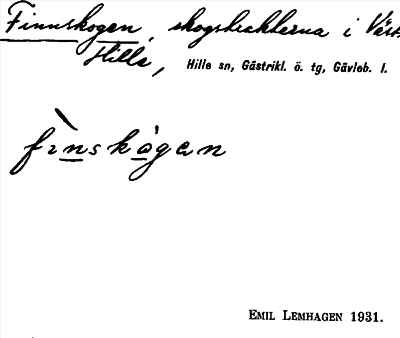 Finnskogen, skogstrakterna i Väst-
Hille, Hille sn, Gästrikl. ö. tg, Gävleb. l.
fìnskògen
EMIL LEMHAGEN 1931.